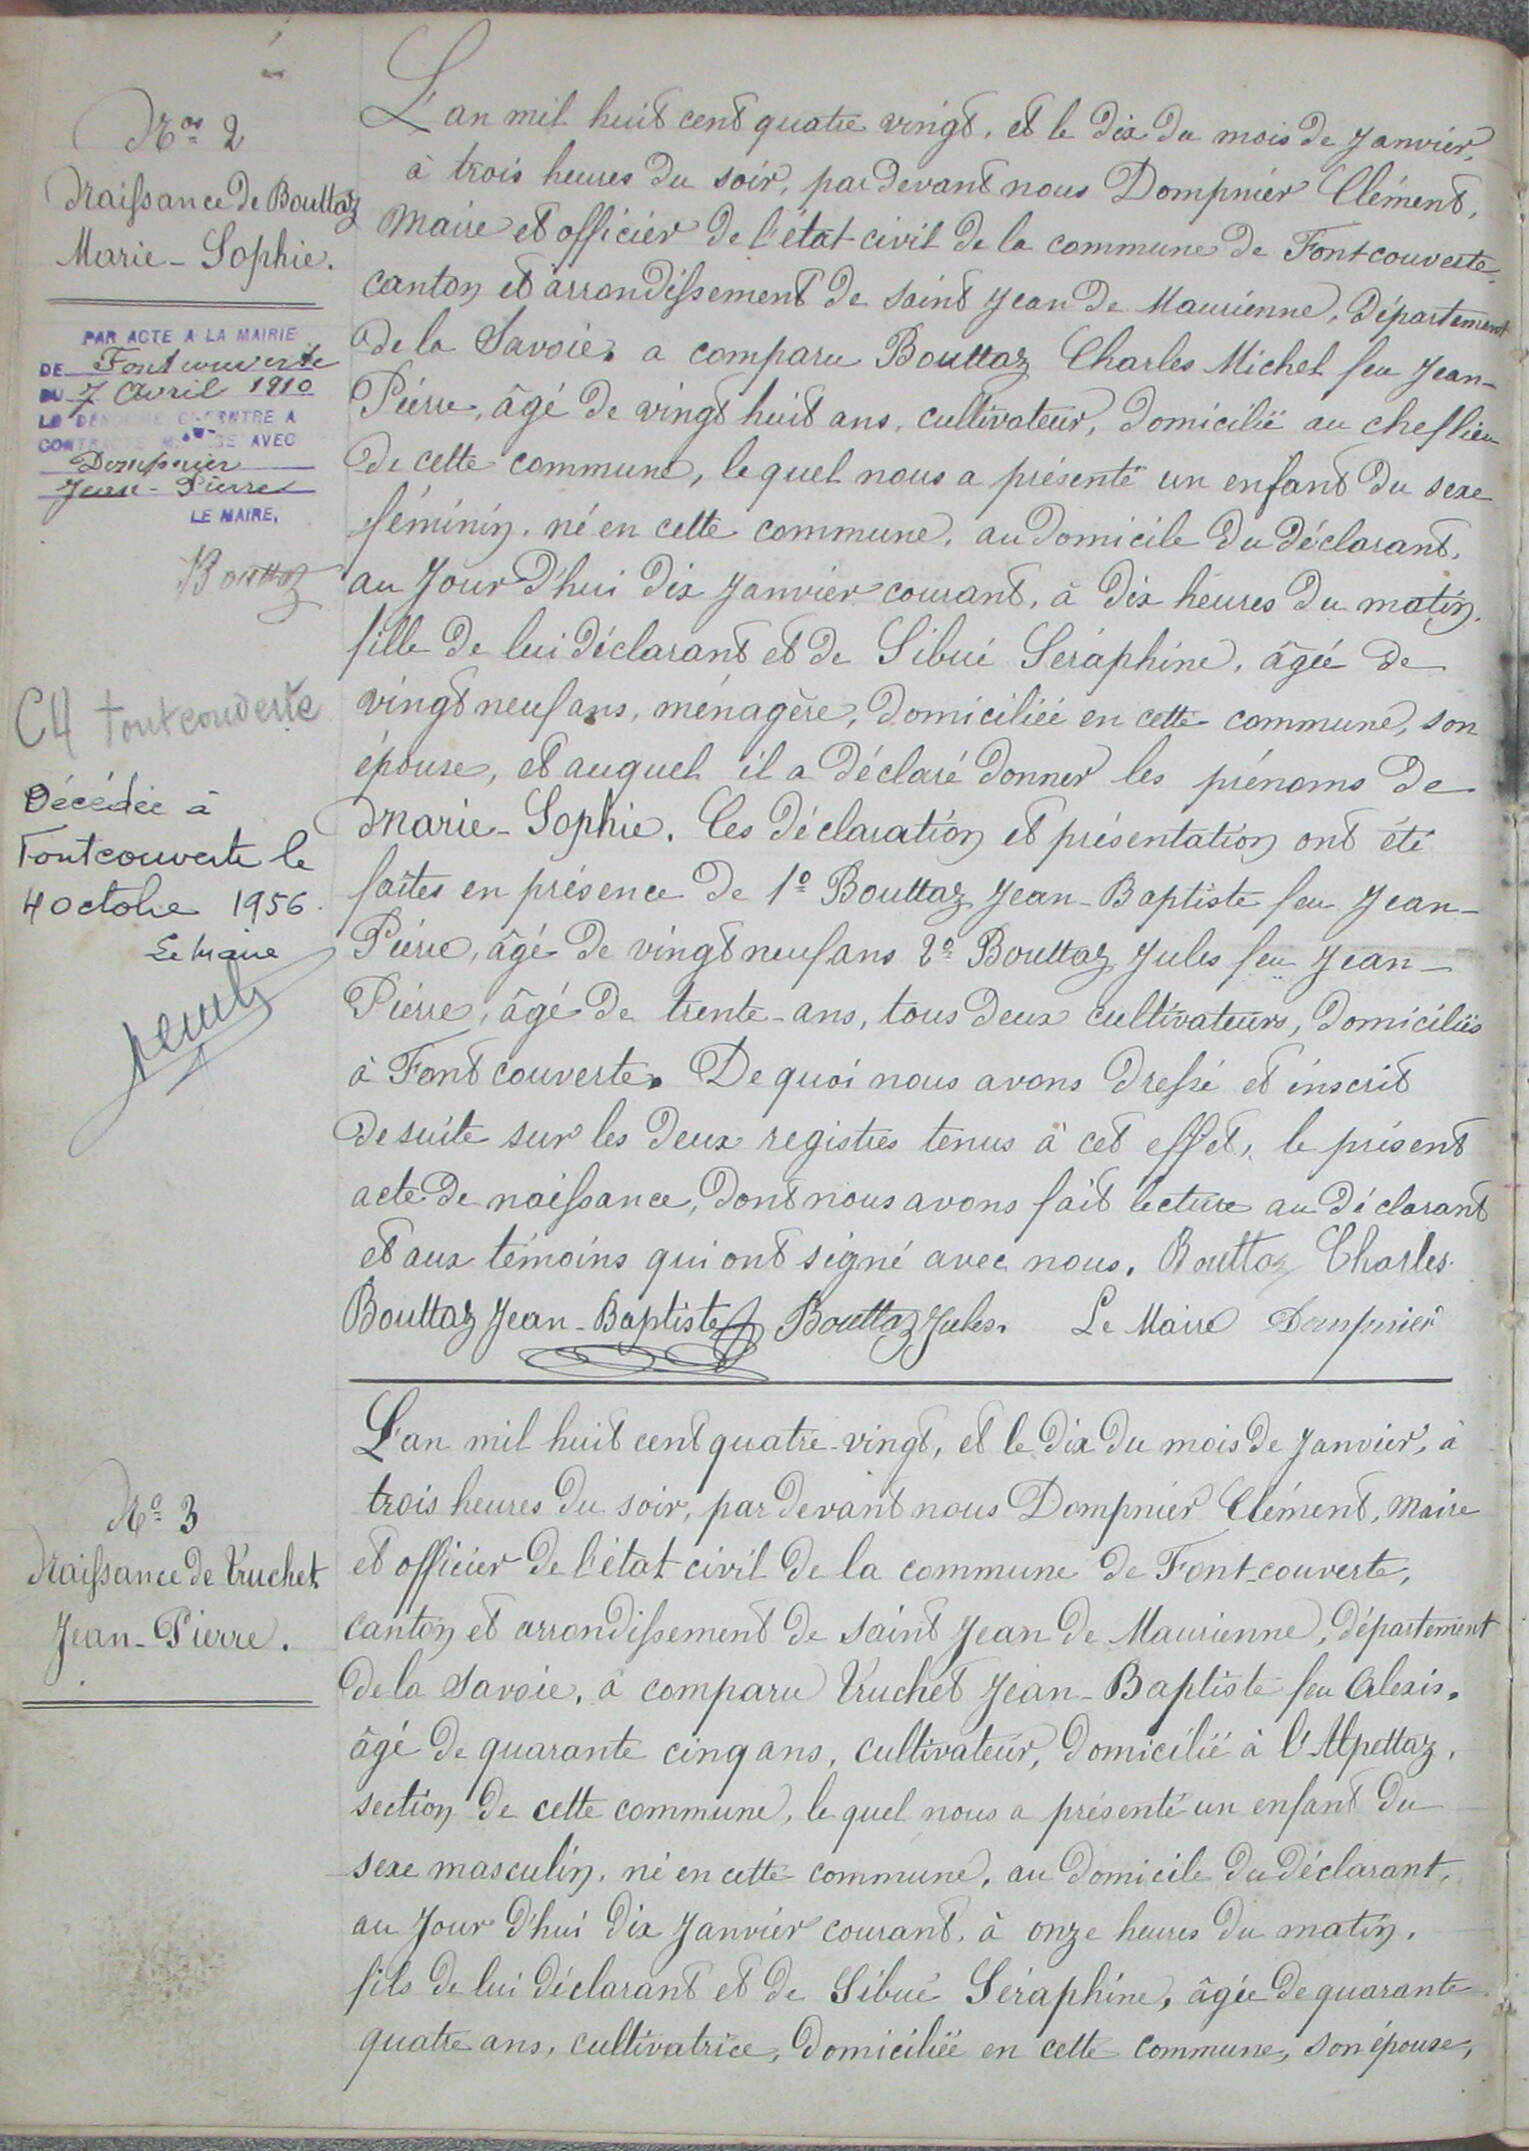 Nos 2
Naissance de Bouttaz
Marie-Sophie.
PAR ACTE A LA MAIRIE
DE Fontcouverte
DU 7 Avril 1910
LE CI-CONTRE A
CONTRACTE AVEC
Dompnier
Jean-Pierre
LE MAIRE,
Bouttaz
C4 Fontcouverte
Décédée à
Fontcouverte le
4 octobre 1956.
Le Maire
L'an mil huit cent quatre vingt, et le dix du mois de Janvier,
à trois heures du soir, par devant nous Dompnier Clément,
Maire et officier de l'état civil de la commune de Fontcouverte,
canton et arrondissement de Saint Jean de Maurienne, département
de la Savoie, a comparu Bouttaz Charles Michel feu Jean-
Pierre, âgé de vingt huit ans, cultivateur, domicilié au cheflieu
de cette commune, lequel nous a présenté un enfant du sexe
féminin, né en cette commune, au domicile du déclarant,
au Jour d'hui dix Janvier courant, à dix heures du matin,
fille de lui déclarant et de Sibué Séraphine, âgée de
vingt neuf ans, ménagère, domiciliée en cette commune, son
épouse, et auquel il a déclaré donner les prénoms de
Marie-Sophie. Ces déclaration et présentation ont été
faites en présence de 1º Bouttaz Jean-Baptiste feu Jean-
Pierre, âgé de vingt neuf ans 2º Bouttaz Jules feu Jean-
Pierre, âgé de trente-ans, tous deux cultivateurs, domiciliés
à Font couverte. De quoi nous avons dressé et inscrit
de suite sur les deux registres tenus à cet effet, le présent
acte de naissance, dont nous avons fait lecture au déclarant
et aux témoins qui ont signé avec nous. Bouttaz Charles.
Bouttaz Jean-Baptiste Bouttaz Jules. Le Maire Dompnier
Nº 3
Naissance de Truchet
Jean-Pierre.
L'an mil huit cent quatre-vingt, et le dix du mois de Janvier, à
trois heures du soir, par devant nous Dompnier Clément, Maire
et officier de l'état civil de la commune de Font-couverte,
canton et arrondissement de Saint Jean de Maurienne, département
de la Savoie, a comparu Truchet Jean-Baptiste feu Alexis,
âgé de quarante cinq ans, cultivateur, domicilié à l'Alpettaz,
section de cette commune, le quel nous a présenté un enfant du
sexe masculin, né en cette commune, au domicile du déclarant,
au Jour d'hui dix Janvier courant, à onze heures du matin,
fils de lui déclarant et de Sibué Séraphine, âgée de quarante
quatre ans, cultivatrice, domiciliée en cette commune, son épouse,